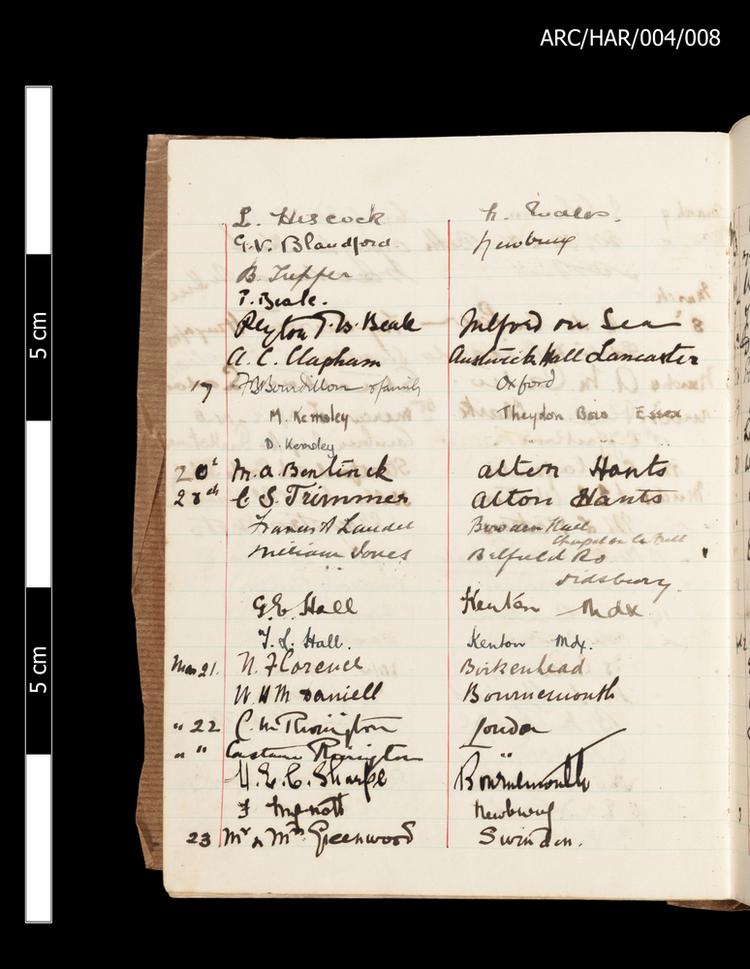 ARC/HAR/004/008
L. Hiscock N. Wales.
G.V. Blandford Newbury
B. Tupper
P. Beale.
Peyton T. B. Beale Milford on Sea
A. C. Clapham Austwick Hall Lancaster
17 F B Bourdillon & family Oxford
M. Kemsley Theydon Bois Essex
D. Kemsley " " "
20t M. A Bentinck Alton Hants
20th C S. Trimmer Alton Hants
Francis A Bowden Hall
Chapel en le
William Jones Belfield Rd
Didsbury.
G.E. Hall Kenton Mdx
Hall. Kenton Mdx.
Mar 21. N. Florence Birkenhead
W H M Daniell Bournemouth
" 22 C. M. Thorington London
" " Thorington "
H. E. C. Sharpe Bournemouth
F Newbury
23 Mr & Mrs Greenwood Swindon.
5 cm
5 cm